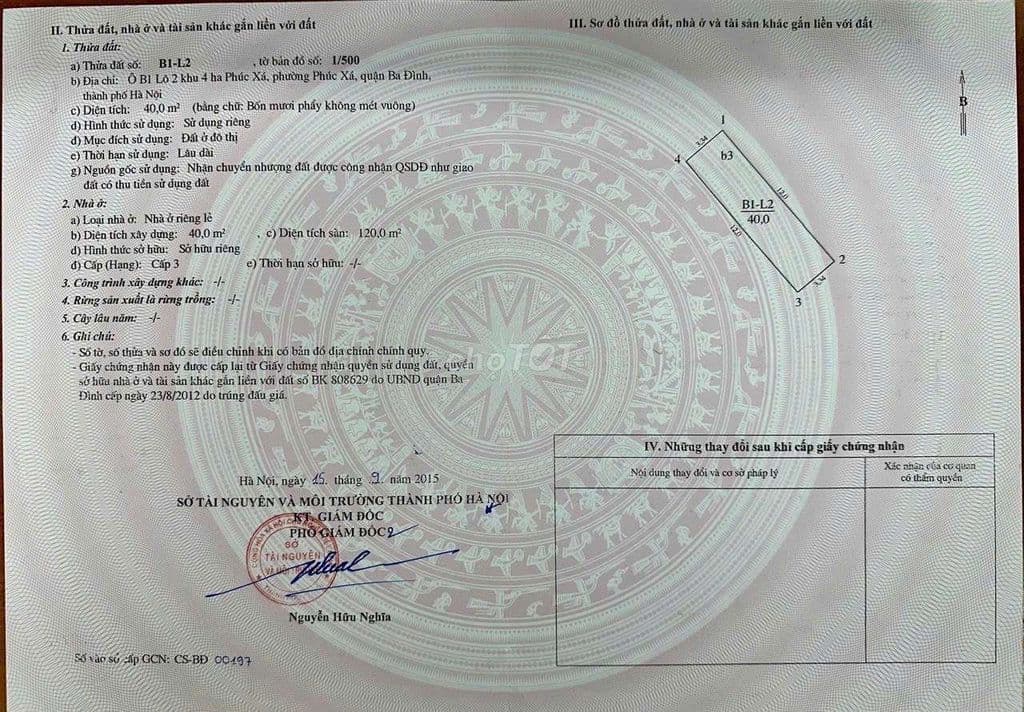 II. Thửa đất, nhà ở và tài sản khác gắn liền với đất
1. Thửa đất:
a) Thửa đất số: B1-L2 , tờ bản đồ số: 1/500
b) Địa chỉ: Ô B1 Lô 2 khu 4 ha Phúc Xá, phường Phúc Xá, quận Ba Đình,
thành phố Hà Nội
c) Diện tích: 40,0 m² (bằng chữ: Bốn mươi phẩy không mét vuông)
d) Hình thức sử dụng: Sử dụng riêng
đ) Mục đích sử dụng: Đất ở đô thị
e) Thời hạn sử dụng: Lâu dài
g) Nguồn gốc sử dụng: Nhận chuyển nhượng đất được công nhận QSDĐ như giao
đất có thu tiền sử dụng đất
2. Nhà ở:
a) Loại nhà ở: Nhà ở riêng lẻ
b) Diện tích xây dựng: 40,0 m² , c) Diện tích sàn: 120,0 m²
d) Hình thức sở hữu: Sở hữu riêng
đ) Cấp (Hạng): Cấp 3 e) Thời hạn sở hữu: -/-
3. Công trình xây dựng khác: -/-
4. Rừng sản xuất là rừng trồng: -/-
5. Cây lâu năm: -/-
6. Ghi chú:
- Số tờ, số thửa và sơ đồ sẽ điều chỉnh khi có bản đồ địa chính chính quy.
- Giấy chứng nhận này được cấp lại từ Giấy chứng nhận quyền sử dụng đất, quyền
sở hữu nhà ở và tài sản khác gắn liền với đất số BK 808629 do UBND quận Ba
Đình cấp ngày 23/8/2012 do trúng đấu giá.
Hà Nội, ngày 15 tháng 9 năm 2015
SỞ TÀI NGUYÊN VÀ MÔI TRƯỜNG THÀNH PHỐ HÀ NỘI
KT. GIÁM ĐỐC
PHÓ GIÁM ĐỐC
SỞ
TÀI NGUYÊN
Nguyễn Hữu Nghĩa
Số vào sổ cấp GCN: CS-BĐ 00197
III. Sơ đồ thửa đất, nhà ở và tài sản khác gắn liền với đất
B
1
3,34
4
b3
12,0
B1-L2
40,0
12,0
2
3,34
3
choTOT
IV. Những thay đổi sau khi cấp giấy chứng nhận
Nội dung thay đổi và cơ sở pháp lý
Xác nhận của cơ quan
có thẩm quyền